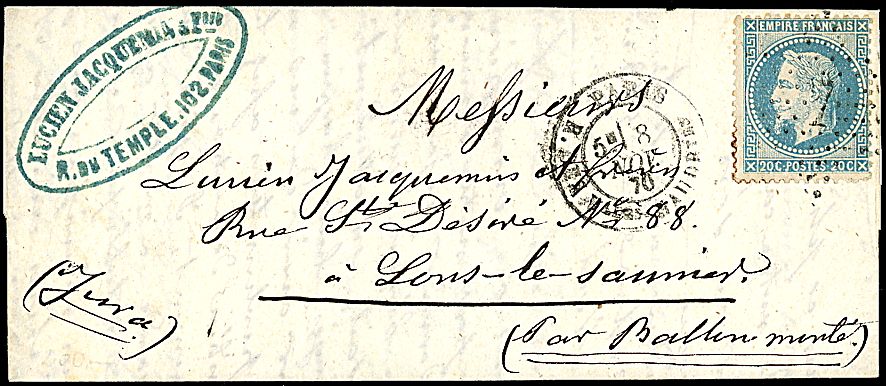 LUCIEN JACQUEMIN & Fils
R. DU TEMPLE. 102. PARIS
EMPIRE FRANÇAIS
20C-POSTES-20C
PARIS
5E
8
NOV.
70
Messieurs
Lucien Jacquemin et
Rue St Désiré No 88.
à Lons-le-saunier.
(Jura)
(Par Ballon monté)